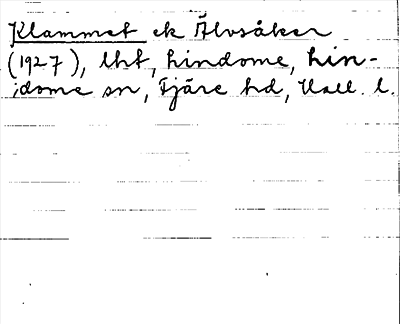 Klammet ek Älvsåker
(1927), lht, hindome, hin-
dome sn, Fjäre hd, Hall. l.